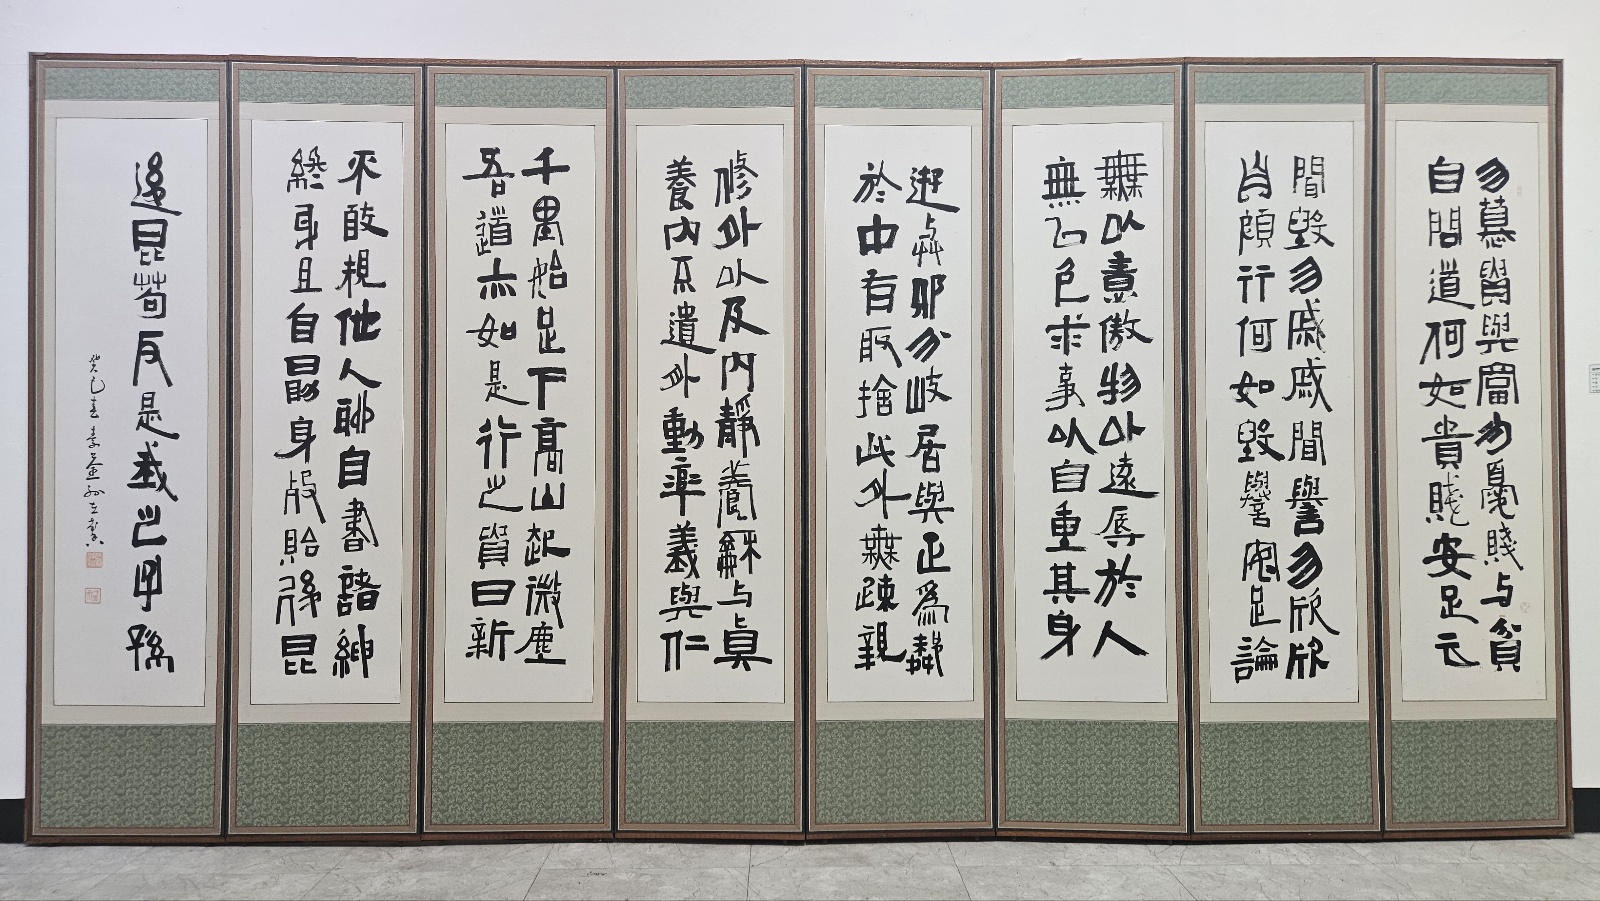 勿慕貴與富勿憂賤与貧
自問道何如貴賤安足云
聞毀勿戚戚聞譽勿欣欣
自顧行何如毀譽安足論
無以意傲物以遠辱於人
無以色求事以自重其身
遊与邪分岐居與正為鄰
於中有取捨此外無疎親
修外以及內靜養龢与真
養內不遺外動率義與仁
千里始足下高山起微塵
吾道亦如是行之貴日新
不敢規他人聊自書諸紳
終身且自勗身歿貽後昆
後昆苟反是我之子孫
癸巳春